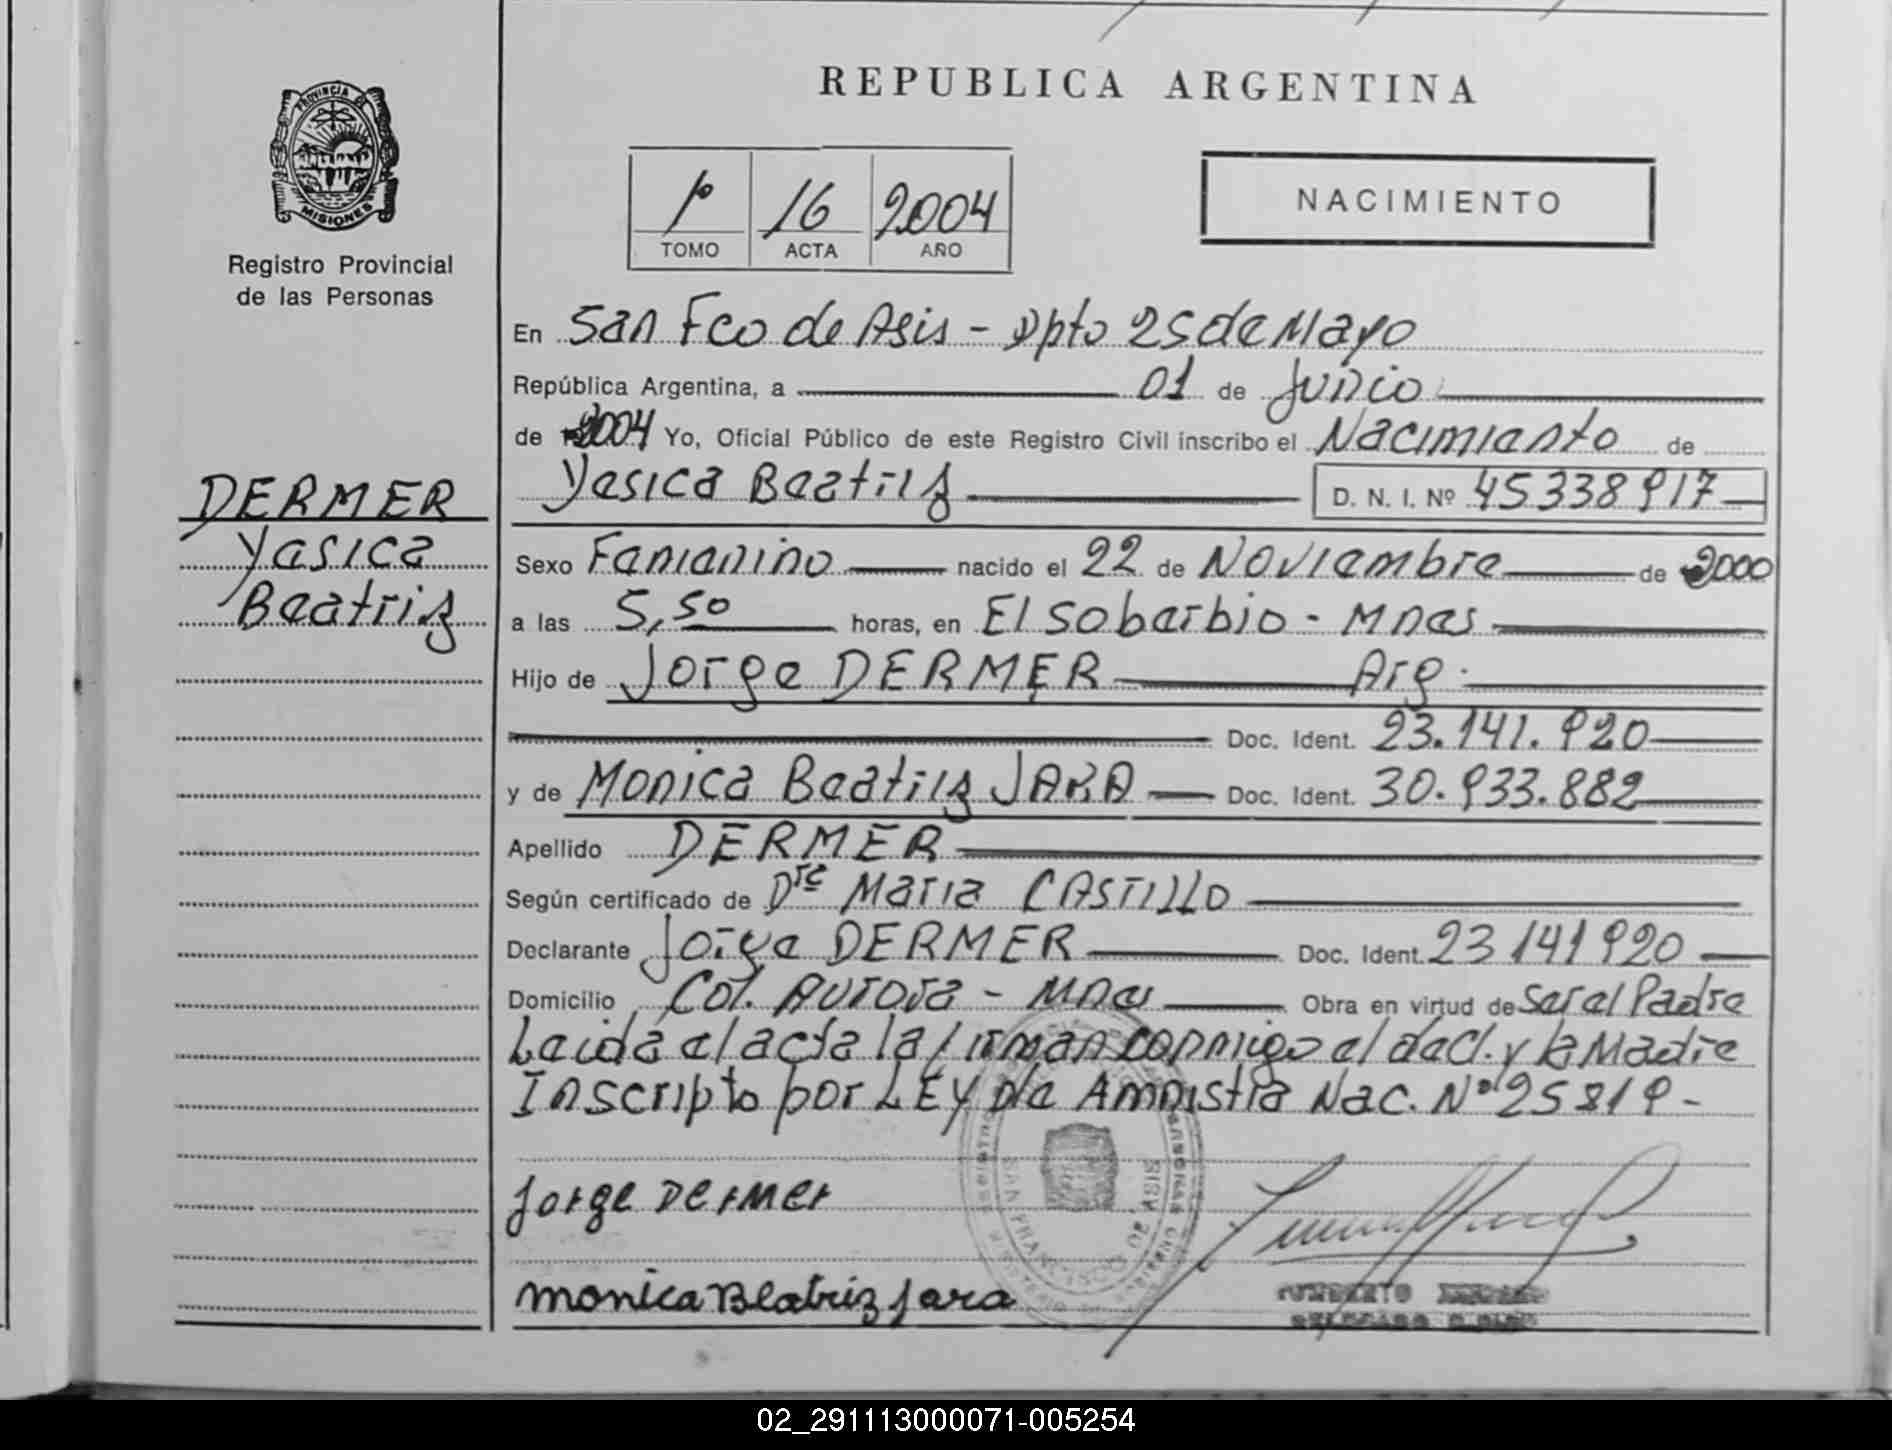 REPUBLICA ARGENTINA
PROVINCIA DE
MISIONES
Registro Provincial
de las Personas
1º 16 2004
TOMO ACTA AÑO
NACIMIENTO
DERMER
Yasica
Beatriz
En San Fco de Asis - Dpto 25 de Mayo
República Argentina, a 01 de Junio
de 2004 Yo, Oficial Público de este Registro Civil inscribo el Nacimianto de
Yasica Beatriz D. N. I. Nº 45338917
Sexo Famanino nacido el 22 de Noviambre de 2000
a las 5,50 horas, en El Sobarbio - Mnas
Hijo de Jorge DERMER Arg.
Doc. Ident. 23.141.920
y de Monica Beatriz JARA Doc. Ident. 30.933.882
Apellido DERMER
Según certificado de Dra Maria CASTILLO
Declarante Jorge DERMER Doc. Ident. 23 141 920
Domicilio Col. Aurora - Mnas Obra en virtud de Ser el Padre
Leida el acta la firman conmigo el decl. y la Madre
Inscripto por LEY de Amnistia Nac. Nº 25819-
Jorge Dermer
monica Beatriz Jara
SAN FRANCISCO
02_291113000071-005254